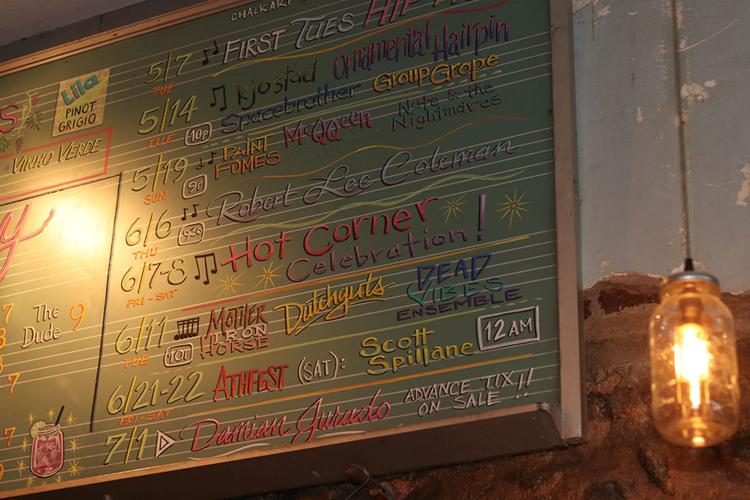 CHALKART
Lila
PINOT
GRIGIO
VINHO VERDE
y
7
8
The
Dude 9
7
9
5/7 TUE FIRST TUES HIP
5/14 TUE 10p kjostad Ornamental Hairpin
Spacebrother GroupGrope
5/19 SUN 9p PAINT
FUMES McQQueen Nate & the
Nightmares
6/6 THU 9:30 Robert Lee Coleman
6/7-8 FRI-SAT Hot Corner
Celebration!
6/11 TUE 10p MOTHER
IRON
HORSE Dutchguts DEAD
VIBES
ENSEMBLE
6/21-22 FRI-SAT ATHFEST (SAT): Scott
Spillane 12AM
7/1 Damian Jurado ADVANCE TIX
ON SALE !!